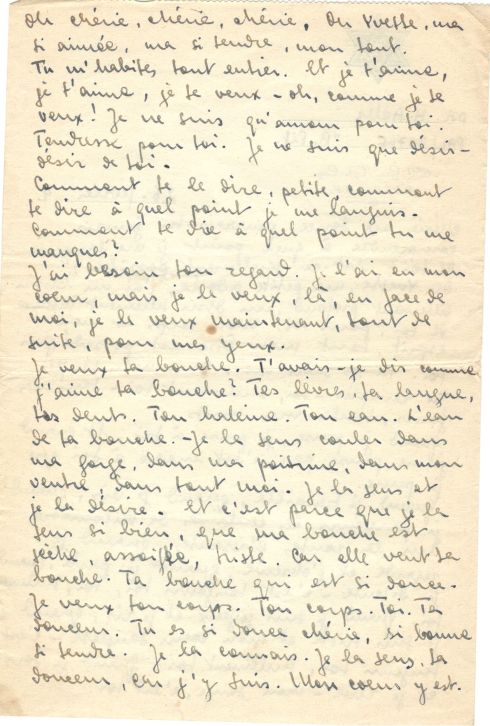 Oh chérie, chérie, chérie. Oh Yvette, ma
si aimée, ma si tendre, mon tout.
Tu m'habites tout entier. Et je t'aime,
je t'aime, je te veux – oh, comme je te
veux! Je ne suis qu'amour pour toi.
Tendresse pour toi. Je ne suis que désir –
désir de toi.
Comment te le dire, petite, comment
te dire à quel point je me languis.
Comment te dire à quel point tu me
manques?
J'ai besoin ton regard. Je l'ai en mon
coeur, mais je le veux, là, en face de
moi, je le veux maintenant, tout de
suite, pour mes yeux.
Je veux ta bouche. T'avais-je dis comme
j'aime ta bouche? Tes lèvres, ta langue,
tes dents. Ton haleine. Ton eau. L'eau
de ta bouche. – Je la sens couler dans
ma gorge, dans ma poitrine, dans mon
ventre, dans tout moi. Je la sens et
je la désire. Et c'est parce que je la
sens si bien, que ma bouche est
sèche, assoifée, triste. Car elle veut ta
bouche. Ta bouche qui est si douce.
Je veux ton corps. Ton corps. Toi. Ta
douceur. Tu es si douce chérie, si bonne
si tendre. Je la connais. Je la sens, ta
douceur, car j'y suis. Mon coeur y est.